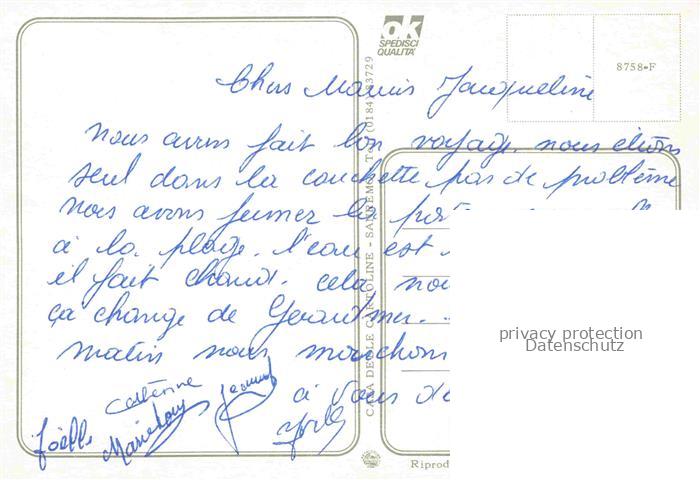 ok
SPEDISCI
QUALITA'
8758-F
Chers Mamis Jacqueline
nous avons fait bon voyage. nous étions
seul dans la couchette pas de problème
nous avons fermer la
à la plage. l'eau est
il fait chaud. cela
ça change de Gerardmer.
matin nous
à vous de
Catherine
Joëlle
CASA DELLE CARTOLINE - SANREMO - Tel. (0184)
privacy protection
Datenschutz
Riprod